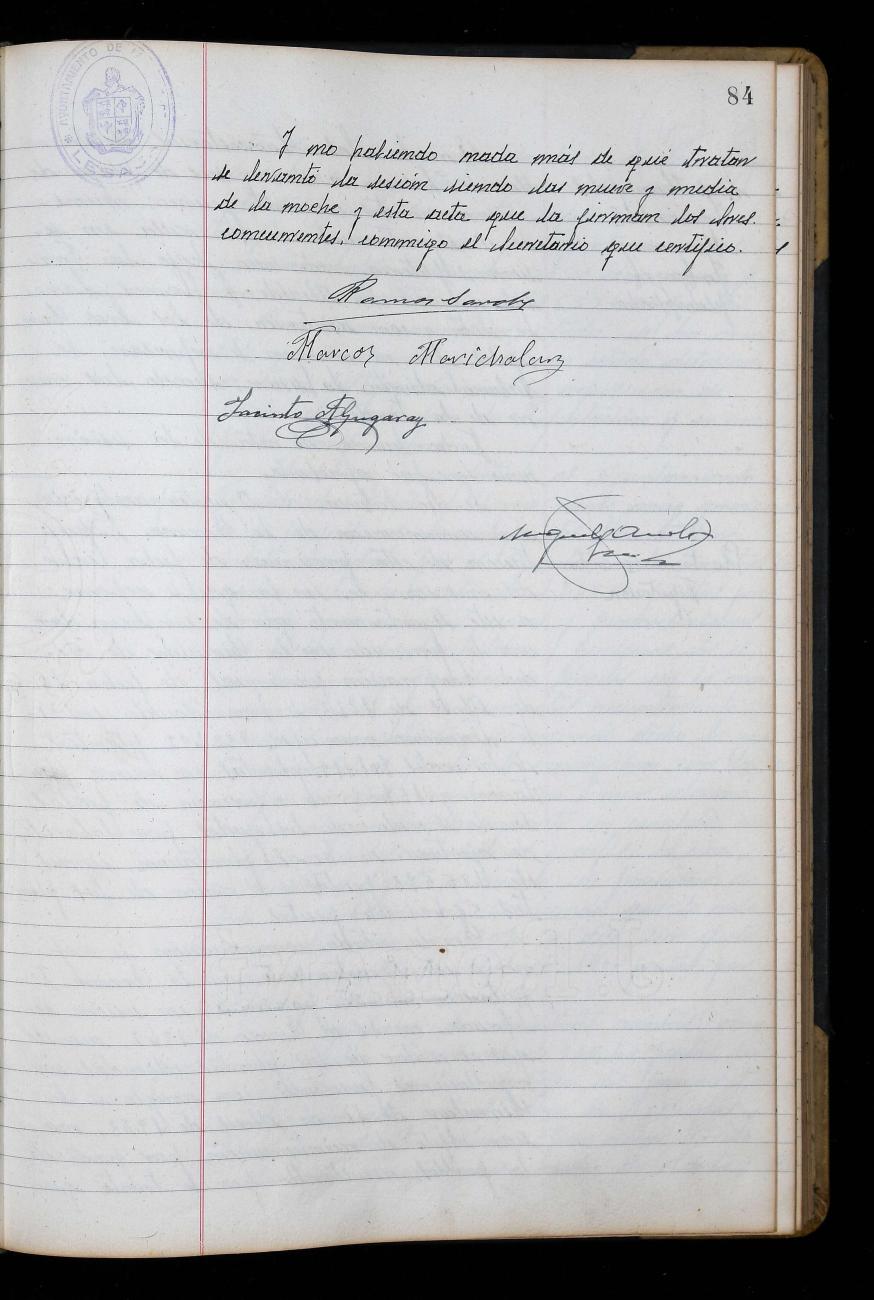 84
AYUNTAMIENTO DE
LESACA
Y no habiendo nada más de que tratar
se levantó la sesión siendo las nueve y media
de la noche y esta acta que la firman los Sres.
concurrentes, conmigo el Secretario que certifico.
Ramon
Marcos Marichalar
Jacinto Algugaray
Miguel